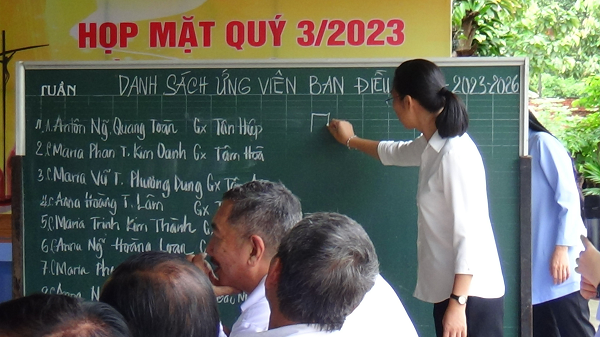 HỌP MẶT QUÝ 3/2023
TUẦN DANH SÁCH ỨNG VIÊN BAN ĐIỀU 2023-2026
1. A. Antôn Ng. Quang Toàn Gx Tân Hiệp
2. Maria Phan T. Kim Oanh Gx Tâm Hoà
3. C. Maria Vũ T. Phương Dung Gx
4. C. Anna Hoàng T. Lâm Gx
5. C. Maria Trịnh Kim Thành
6. C. Anna Ng. Hoàng Loan
7. C. Maria
8. C. Anna